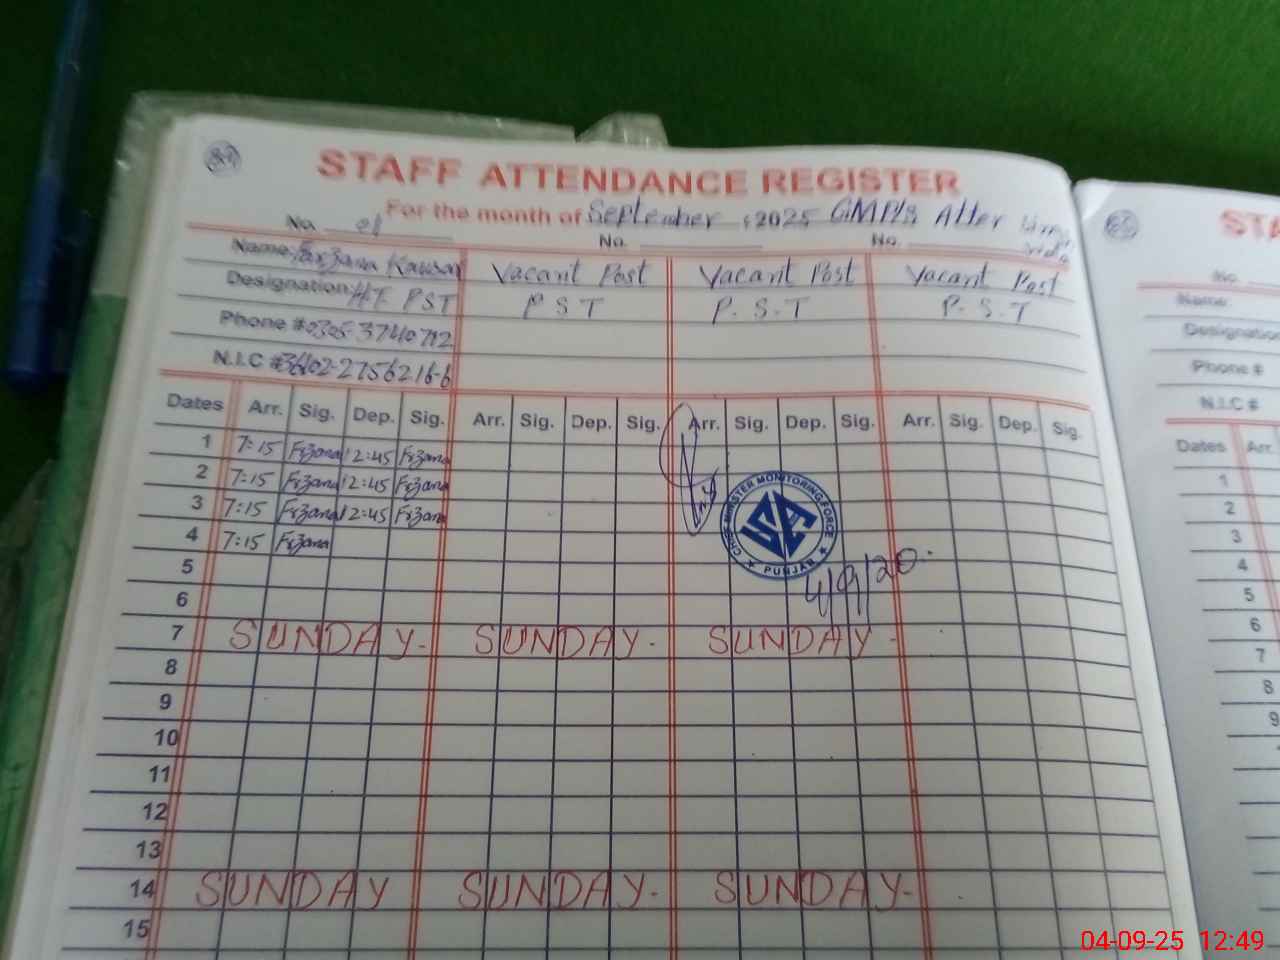 STAFF ATTENDANCE REGISTER
For the month of September, 2025 GMP/s Atter
No. 01 No. No.
Name: Farzana Kausar Vacant Post Vacant Post Vacant Post
Designation: H.T. PST P S T P. S. T P. S. T
Phone # 0305-3740792
N.I.C # 36402-2756216-6
Dates Arr. Sig. Dep. Sig. Arr. Sig. Dep. Sig. Arr. Sig. Dep. Sig. Arr. Sig. Dep. Sig.
1 7:15 Frzana 12:45 Frzana
2 7:15 Frzana 12:45 Frzana
3 7:15 Frzana 12:45 Frzana
4 7:15 Frzana
CHIEF MINISTER MONITORING FORCE
PUNJAB
4/9/20
5
6
7 SUNDAY. SUNDAY. SUNDAY.
8
9
10
11
12
13
14 SUNDAY SUNDAY. SUNDAY.
15
STA
No.
Name:
Designation
Phone #
N.I.C #
Dates Arr.
1
2
3
4
5
6
7
8
9
04-09-25 12:49